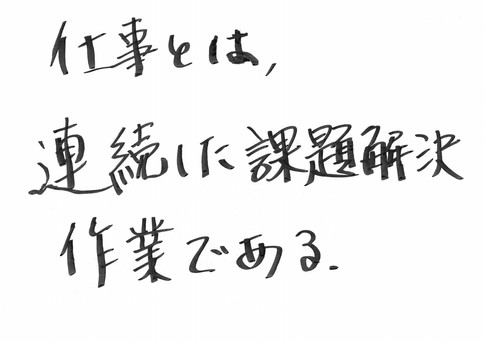 仕事とは,
連続した課題解決
作業である.